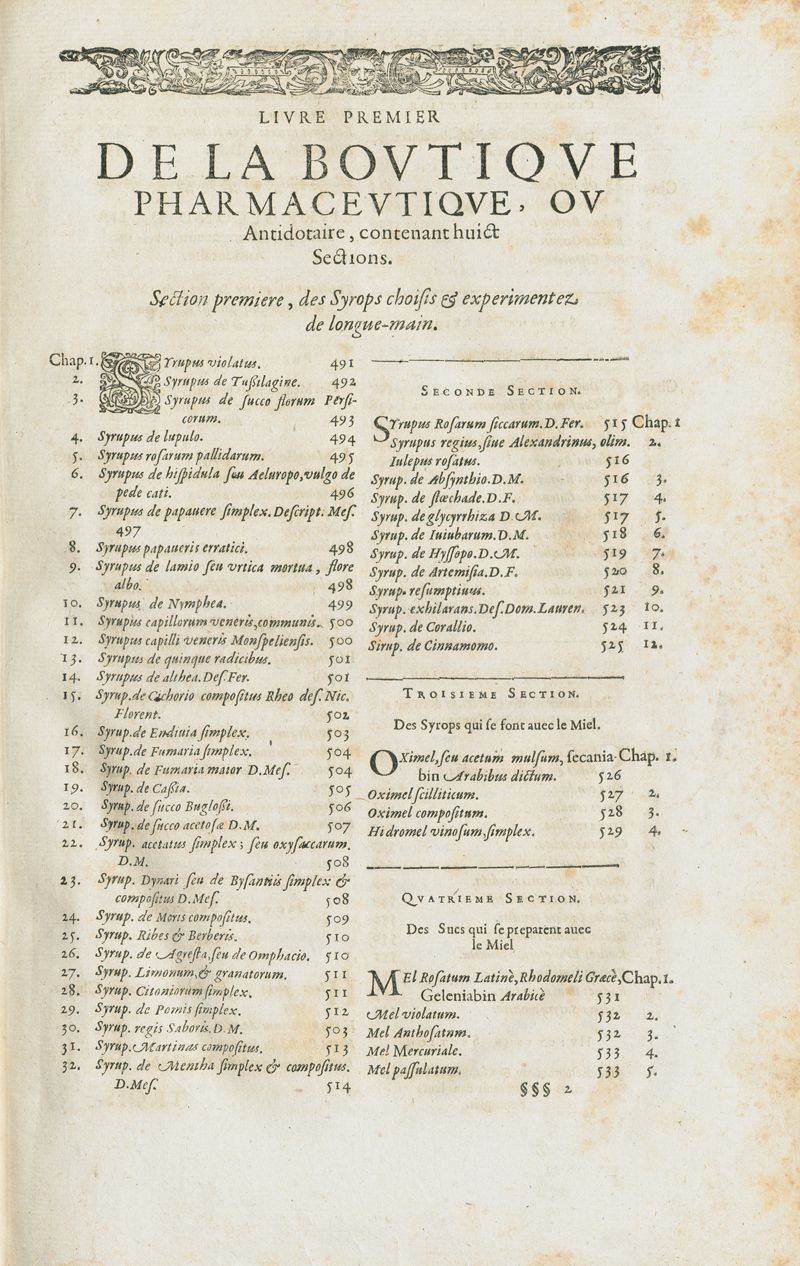 LIVRE PREMIER
DE LA BOVTIQVE
PHARMACEVTIQVE, OV
Antidotaire, contenant huict
Sections.
Section premiere, des Syrops choisis & experimentez
de longue-main.
Chap. 1. SYrupus violatus. 491
2. Syrupus de Tußilagine. 492
3. Syrupus de succo florum Persi-
corum. 493
4. Syrupus de lupulo. 494
5. Syrupus rosarum pallidarum. 495
6. Syrupus de hispidula seu Aeluropo, vulgo de
pede cati. 496
7. Syrupus de papauere simplex. Descript. Mes.
497
8. Syrupus papaueris erratici. 498
9. Syrupus de lamio seu vrtica mortua, flore
albo. 498
10. Syrupus de Nymphea. 499
11. Syrupus capillorum veneris, communis. 500
12. Syrupus capilli veneris Monspeliensis. 500
13. Syrupus de quinque radicibus. 501
14. Syrupus de althea. Des. Fer. 501
15. Syrup. de Cichorio compositus Rheo des. Nic.
Florent. 502
16. Syrup. de Endiuia simplex. 503
17. Syrup. de Fumaria simplex. 504
18. Syrup. de Fumaria maior D. Mes. 504
19. Syrup. de Caßia. 505
20. Syrup. de succo Bugloßi. 506
21. Syrup. de succo acetosæ D. M. 507
22. Syrup. acetatus simplex; seu oxysaccarum.
D. M. 508
23. Syrup. Dynari seu de Bysantiis simplex &
compositus D. Mes. 508
24. Syrup. de Moris compositus. 509
25. Syrup. Ribes & Berberis. 510
26. Syrup. de Agresta, seu de Omphacio. 510
27. Syrup. Limonum, & granatorum. 511
28. Syrup. Citoniorum simplex. 511
29. Syrup. de Pomis simplex. 512
30. Syrup. regis Saboris. D. M. 503
31. Syrup. Martinas compositus. 513
32. Syrup. de Mentha simplex & compositus.
D. Mes. 514
SECONDE SECTION.
SYrupus Rosarum siccarum. D. Fer. 515 Chap. 1
Syrupus regius, siue Alexandrinus, olim. 2.
Iulepus rosatus. 516
Syrup. de Absynthio. D. M. 516 3.
Syrup. de stœchade. D. F. 517 4.
Syrup. de glycyrrhiza D M. 517 5.
Syrup. de Iuiubarum. D. M. 518 6.
Syrup. de Hyssopo. D. M. 519 7.
Syrup. de Artemisia. D. F. 520 8.
Syrup. resumptiuus. 521 9.
Syrup. exhilarans. Des. Dom. Lauren. 523 10.
Syrup. de Corallio. 524 11.
Sirup. de Cinnamomo. 525 12.
TROISIEME SECTION.
Des Syrops qui se font auec le Miel.
OXimel, seu acetum mulsum, secania- Chap. 1.
bin Arabibus dictum. 526
Oximel scilliticum. 527 2.
Oximel compositum. 528 3.
Hidromel vinosum, simplex. 529 4.
QVATRIEME SECTION.
Des Sucs qui se preparent auec
le Miel
MEl Rosatum Latinè, Rhodomeli Græcè, Chap. 1.
Geleniabin Arabicè 531
Mel violatum. 532 2.
Mel Anthosatum. 532 3.
Mel Mercuriale. 533 4.
Mel passulatum. 533 5.
§§§ 2